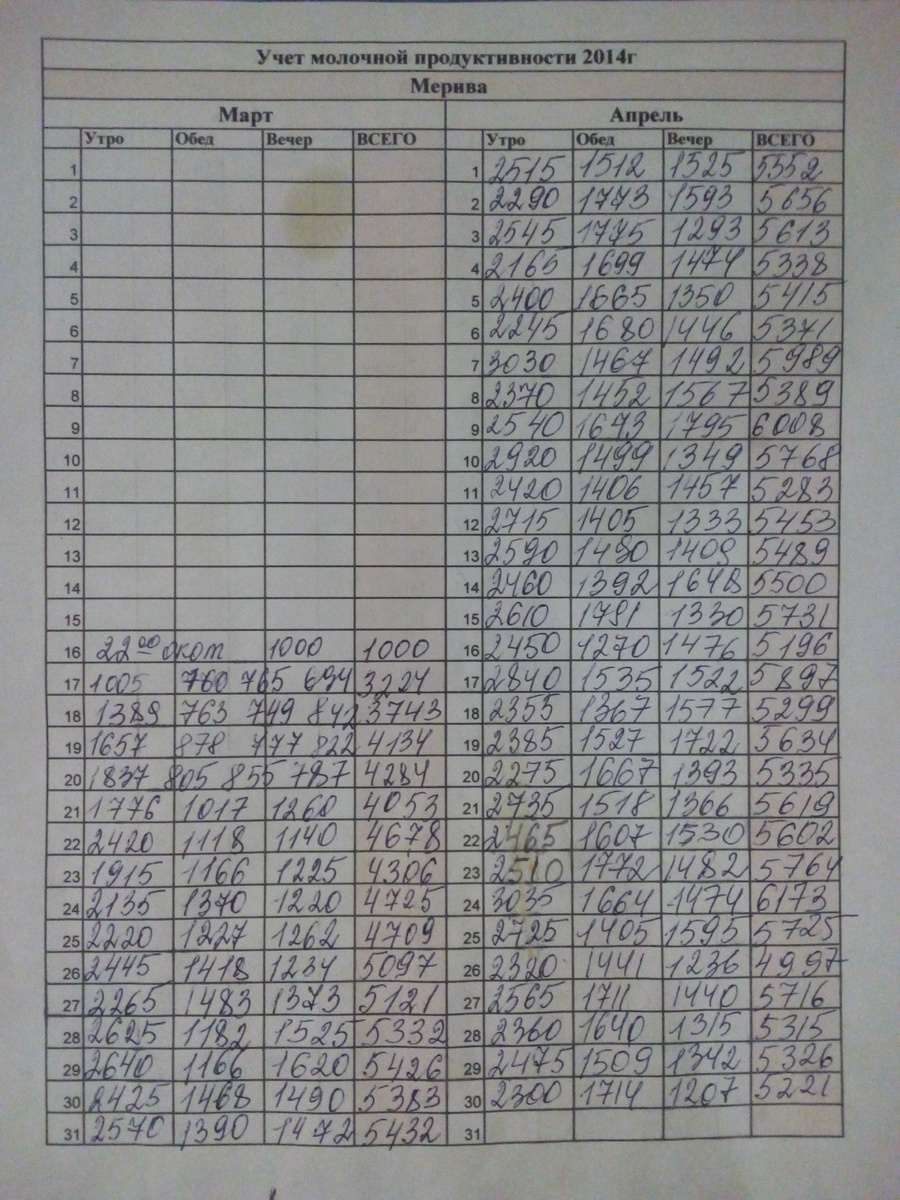 Учет молочной продуктивности 2014г
Мерива
Март Апрель
Утро Обед Вечер ВСЕГО Утро Обед Вечер ВСЕГО
1 1 2515 1512 1525 5552
2 2 2290 1773 1593 5656
3 3 2545 1775 1293 5613
4 4 2165 1699 1474 5338
5 5 2400 1665 1350 5415
6 6 2245 1680 1446 5371
7 7 3030 1467 1492 5989
8 8 2370 1452 1567 5389
9 9 2540 1673 1795 6008
10 10 2920 1499 1349 5768
11 11 2420 1406 1457 5283
12 12 2715 1405 1333 5453
13 13 2590 1490 1409 5489
14 14 2460 1392 1648 5500
15 15 2610 1791 1330 5731
16 22 00 окот 1000 1000 16 2450 1270 1476 5196
17 1005 760 765 694 3224 17 2840 1535 1522 5897
18 1389 763 749 842 3743 18 2355 1367 1577 5299
19 1657 878 777 822 4134 19 2385 1527 1722 5634
20 1837 805 855 787 4284 20 2275 1667 1393 5335
21 1776 1017 1260 4053 21 2735 1518 1366 5619
22 2420 1118 1140 4678 22 2465 1607 1530 5602
23 1915 1166 1225 4306 23 2510 1772 1482 5764
24 2135 1370 1220 4725 24 3035 1664 1474 6173
25 2220 1227 1262 4709 25 2725 1405 1595 5725
26 2445 1418 1234 5097 26 2320 1441 1236 4997
27 2265 1483 1373 5121 27 2565 1711 1440 5716
28 2625 1182 1525 5332 28 2360 1640 1315 5315
29 2640 1166 1620 5426 29 2475 1509 1342 5326
30 2425 1468 1490 5383 30 2300 1714 1207 5221
31 2570 1390 1472 5432 31